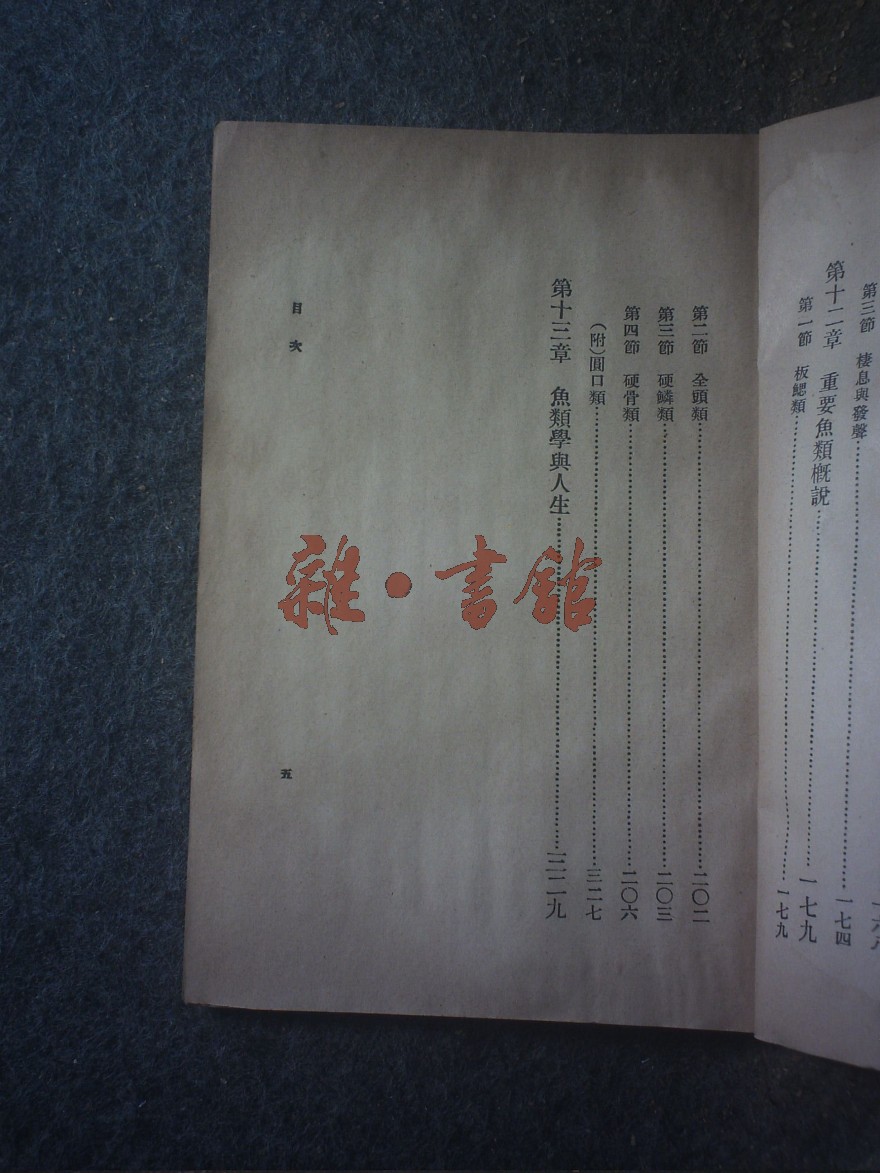 第三節　棲息與發聲…………一七四
第十二章　重要魚類槪說…………一七九
第一節　板鰓類…………一七九
第二節　全頭類…………二〇二
第三節　硬鱗類…………二〇三
第四節　硬骨類…………二〇六
(附)圓口類…………三二七
第十三章　魚類學與人生…………三二九
目次
五
雜•書館